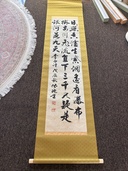 日照香爐生紫煙遙看瀑布
掛前川飛流直下三千尺疑是
銀河落九天